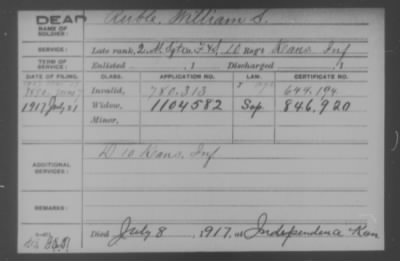 DEAD
NAME OF SOLDIER: Ruble, William S.
SERVICE: Late rank, Q. M. Sgt. F&S. 10 Reg't Kans. Inf
TERM OF SERVICE: Enlisted , 1 Discharged , 1
DATE OF FILING. CLASS. APPLICATION NO. LAW. CERTIFICATE NO.
Invalid, 780.313 644.194
1917 July 21 Widow, 1104582 Sep. 846.920
Minor,
ADDITIONAL SERVICES: D 10 Kans. Inf
REMARKS:
Died July 8, 1917, at Independence Kan